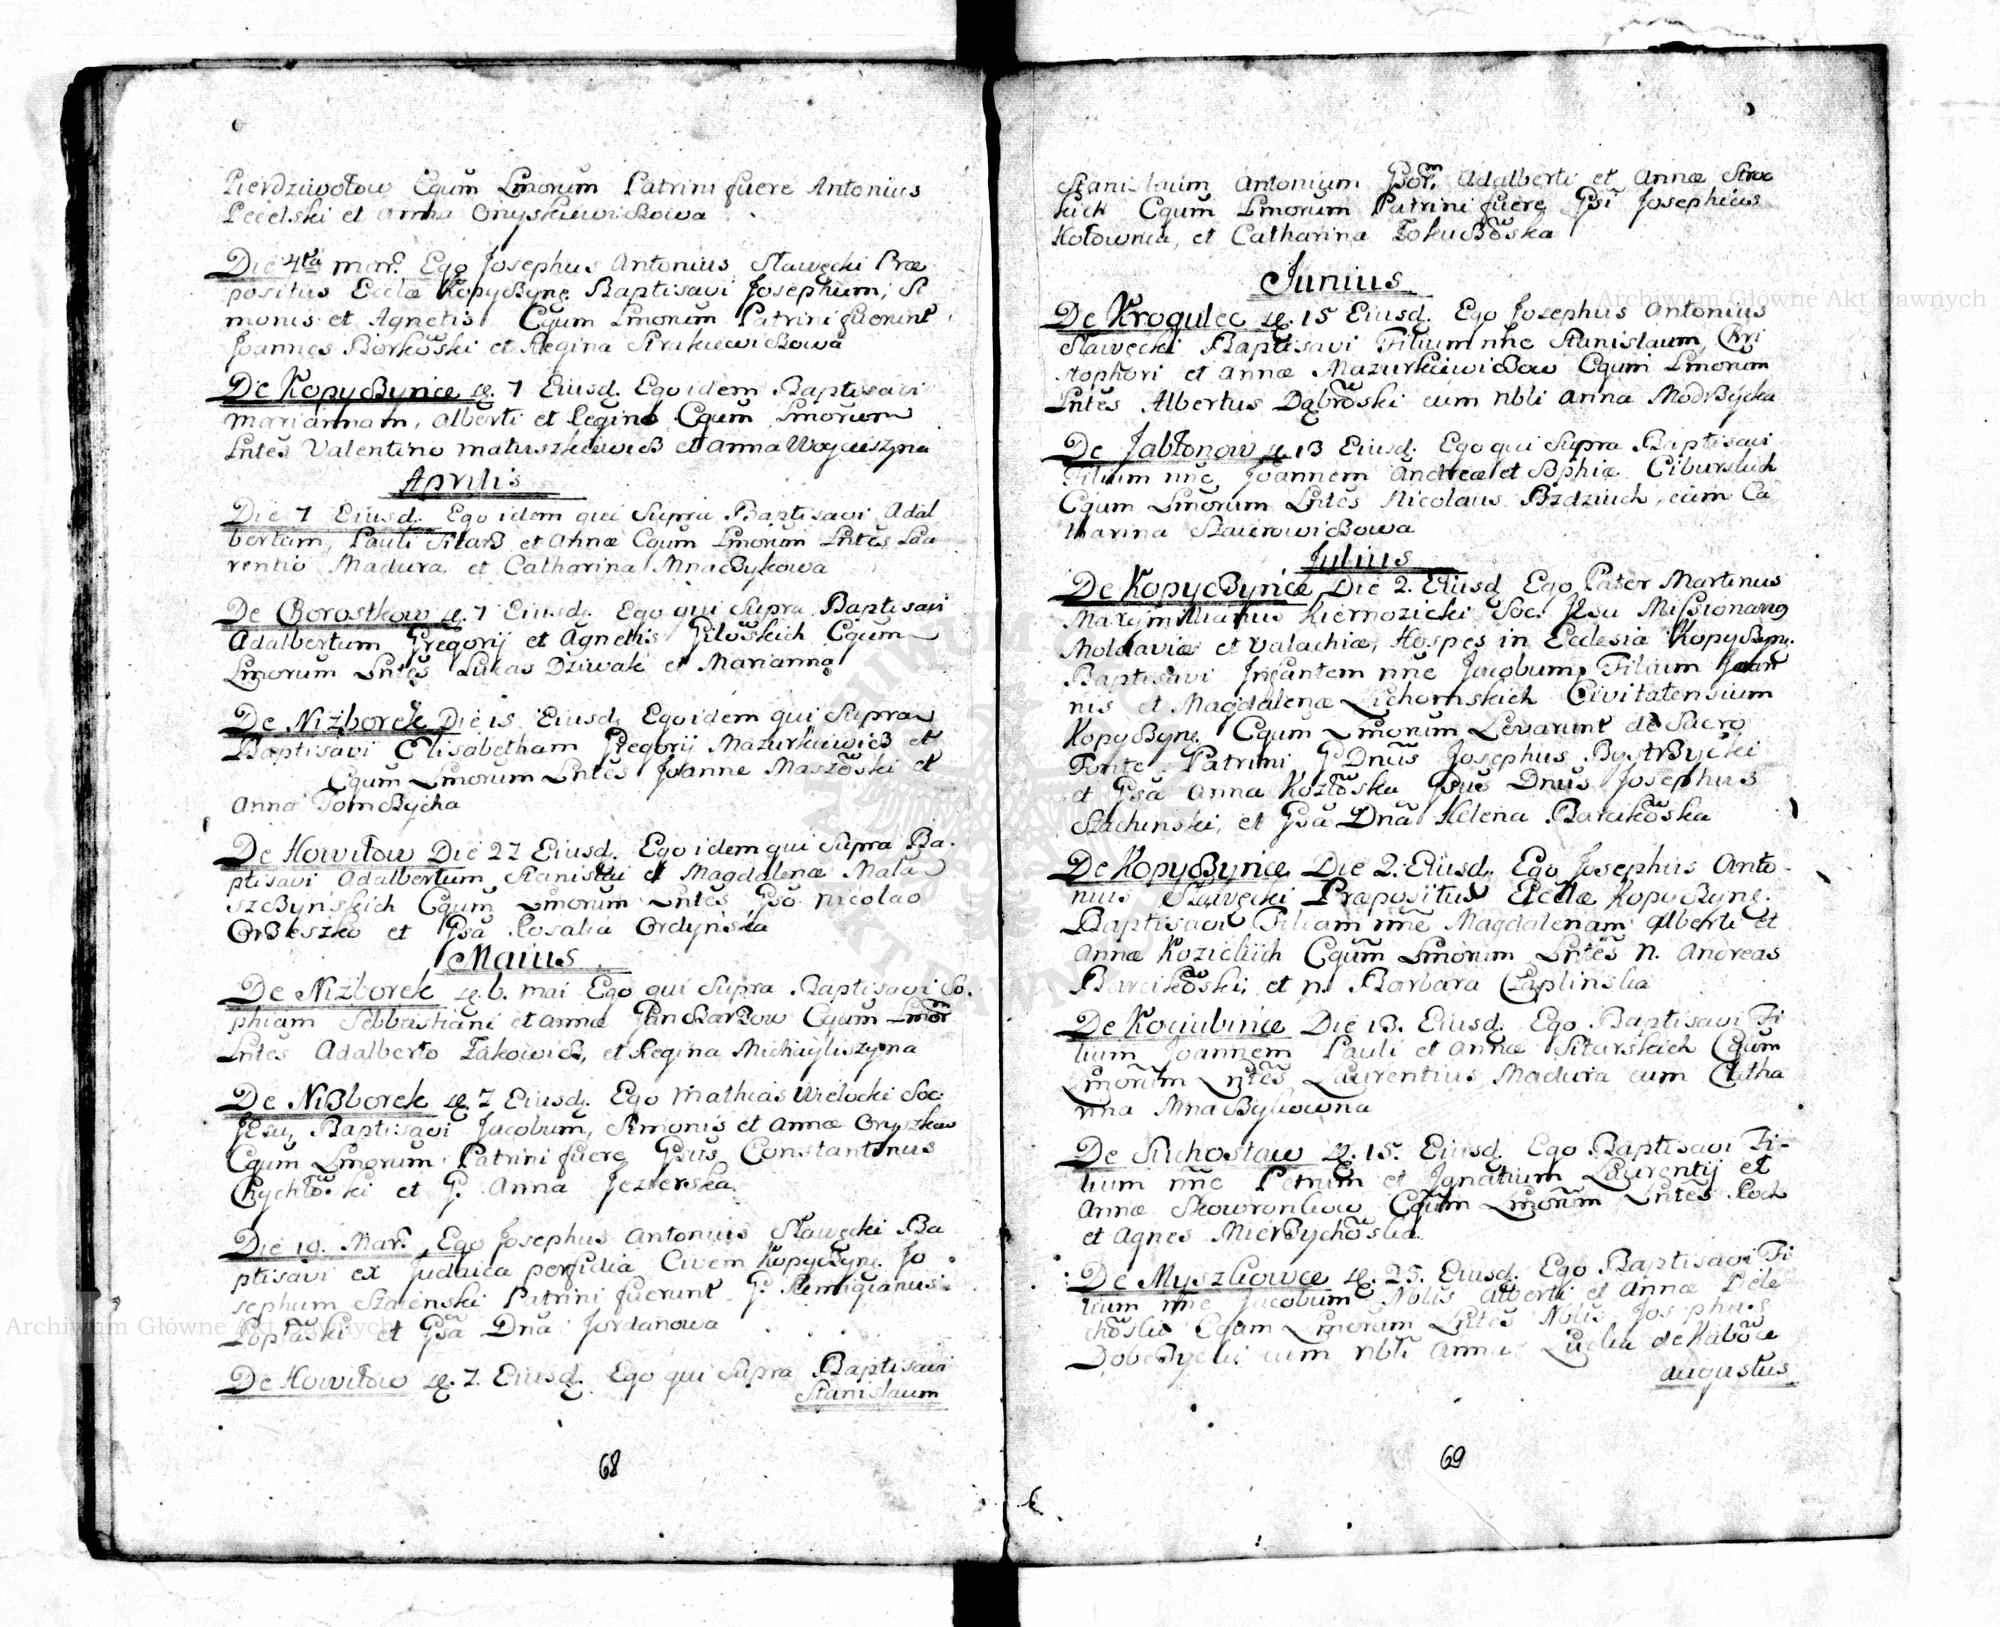 Pierdziwołow Cgum Lmorum Patrini fuere Antonius
Pecelski et Anna Onyskiewiczowa
Die 4ta mar. Ego Josephus Antonius Sławęcki Præ
positus Ecclæ Kopyczyne Baptisavi Josephum, Si
monis et Agnetis Cgum Lmorum Patrini fuerunt
Joannes Borkowski et Regina Strakiewiczowa
De Kopyczynce 7 Eiusd. Ego idem Baptisavi
Mariannam, Alberti et Regine Cgum Lmorum
Lntes Valentino Matuszkiewicz et Anna Woycieszyna
Aprilis
Die 7 Eiusd. Ego idem qui Supra Baptisavi Adal
bertum, Pauli Sitarz et Annæ Cgum Lmorum Lntes Lau
rentio Madura, et Catharina Mnaczykowa
De Chorostkow 7 Eiusd. Ego qui Supra Baptisavi
Adalbertum Gregorij et Agnetis Cgum
Lmorum Lntes Lukas Dziwak et Marianna
De Niżborek Die 15 Eiusd. Ego idem qui Supra
Baptisavi Elisabetham Gregorij Mazurkiewicz et
Cgum Lmorum Lntes Joanne Maszowski et
Anna Tomczycha
De Howiłow Die 27 Eiusd. Ego idem qui Supra Ba
ptisavi Adalbertum Stanislai et Magdalenæ Mala
szczynskich Cgum Lmorum Lntes Gso Nicolao
Orzeszko et Gsa Rosalia Ordynska
Maius
De Niżborek 6. mai Ego qui Supra Baptisavi So.
phiam Sebbastiani et Annæ Cgum Lmor
Lntes Adalberto Żakowicz, et Regina Michayliszyna
De Niżborek 7 Eiusd. Ego Mathias Wielocki Soc.
Jesu, Baptisavi Jacobum, Simonis et Annæ Oryszkow
Cgum Lmorum Patrini fuere Gsus Constantinus
Chychłowski et G. Anna Jezierska
Die 19. Mar. Ego Josephus Antonius Sławęcki Ba
ptisavi ex Judaica perfidia Civem Kopyczyne Jo
sephum Patrini fuerunt G. Remigianus
et Gsa Dna Jordanowa
De Howiłow 7. Eiusd. Ego qui Supra Baptisavi
Stanislaum
Stanislaum Antonium Gsor. Adalberti et Annæ Stroc
kich Cgum Lmorum Patrini fuere Gsi Josephus
Kotownia, et Catharina
Junius
De Krogulec 15 Eiusd. Ego Josephus Antonius
Sławęcki Baptisavi Filium nne Stanislaum, Chri
stophori et Annæ Mazurkiewiczow Cgum Lmorum
Lntes Albertus Dąbrowski cum nbli Anna Modrzycka
De Jabłonow 13 Eiusd. Ego qui Supra Baptisavi
Filium nne Joannem Andreæ et Sophiæ Ciburskich
Cgum Lmorum Lntes Nicolaus Bzdziuch, cum Ca
tharina
Julius
De Kopyczynce Die 2. Eiusd Ego Pater Martinus
Maxymilianus Kiernozicki Soc. Jesu Missionarig
Moldaviæ et Valachiæ, Hospes in Ecclesia Kopyczyn.
Baptisavi Infantem nne Jacobum Filium Joan
nis et Magdalenæ Lichornskich Civitatensium
Kopyczyne Cgum Lmorum Levarunt de Sacro
Fonte Patrini G Dnus Josephus Bystrzycki
et Gsa Anna Kozłowska Gsus Dnus Josephus
Stachinski, et Gsa Dna Helena Barcikowska
De Kopyczynce Die 2. Eiusd. Ego Josephus Anto
nius Sławęcki Præpositus Ecclæ Kopyczyne.
Baptisavi Filiam nne Magdalenam Alberti et
Annæ Kozickich Cgum Lmorum Lntes N. Andreas
Barcikowski, et n. Barbara Czaplinska
De Kociubince Die 13. Eiusd. Ego Baptisavi Fi
lium Joannem Pauli et Annæ Sitarskich Cgum
Lmorum Lntes Laurentius Madura cum Catha
rina Mnaczykowna
De Suchostaw 15. Eiusd. Ego Baptisavi Fi-
lium nne Petrum et Ignatium Laurentij et
Annæ Skowronkow Cgum Lmorum Lntes Roch
et Agnes Mierzychowska
De Myszkowce 25. Eiusd. Ego Baptisavi Fi
lium nne Jacobum Nblis Alberti et Annæ Piele
chowskich Cgum Lmorum Lntes Nblis Josephus
Dobczycki cum nbli Anna
Augustus
68
69
Archiwum Główne Akt Dawnych
Archiwum Główne Akt Dawnych